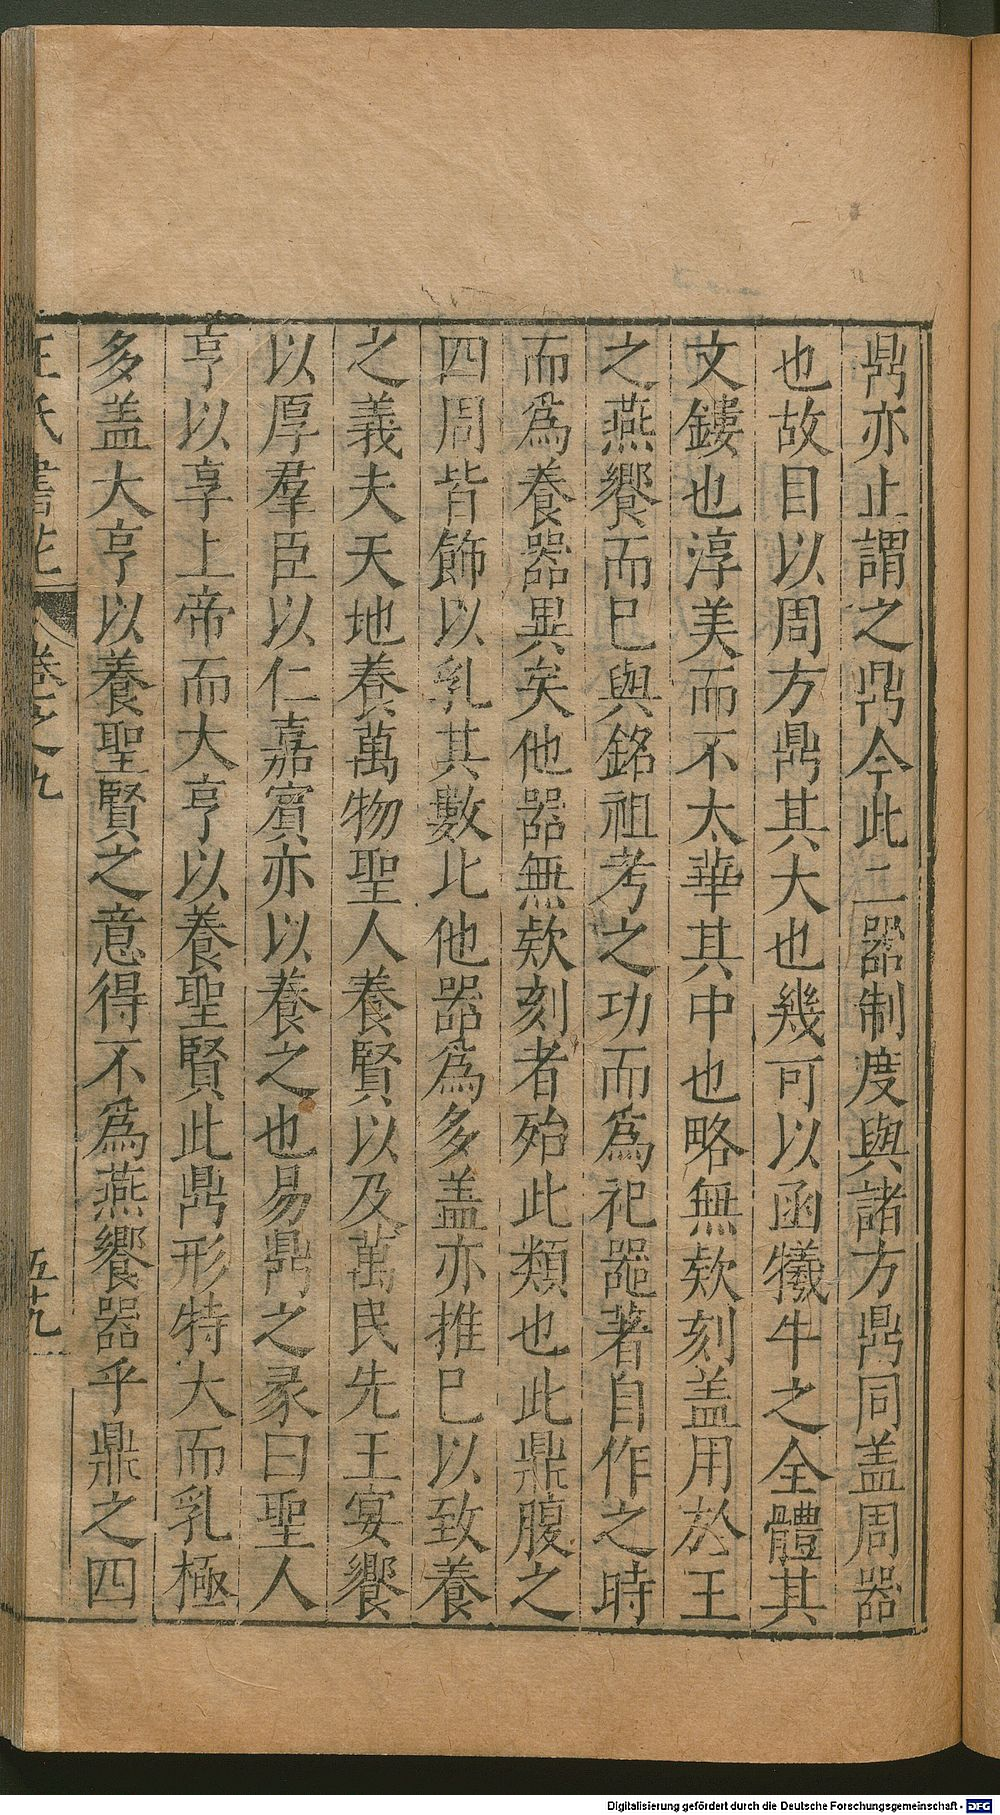 鼎亦止謂之鼎今此二器制度與諸方鼎同盖周器
也故目以周方鼎其大也幾可以函犧牛之全體其
文鏤也淳美而不太華其中也略無欵刻盖用於王
之燕饗而已與銘祖考之功而爲祀噐著自作之時
而爲養器異矣他器無欵刻者殆此類也此鼎腹之
四周皆飾以乳其數比他器爲多盖亦推已以致養
之義夫天地養萬物聖人養賢以及萬民先王宴饗
以厚羣臣以仁嘉賓亦以養之也易鼎之彖曰聖人
亨以享上帝而大亨以養聖賢此鼎形特大而乳極
多盖大亨以養聖賢之意得不爲燕饗器乎鼎之四
卷之九
五十九
Digitalisierung gefördert durch die Deutsche Forschungsgemeinschaft - DFG